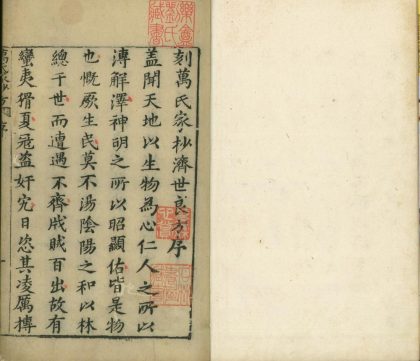 刻萬氏家抄濟世良方序
蓋聞天地以生物為心仁人之所以
溥解澤神明之所以昭顯佑皆是物
也慨厥生民莫不湯陰陽之和以林
總于世而遭遇不齊戕賊百出故有
蠻夷猾夏寇盜奸宄日恣其凌厲摶